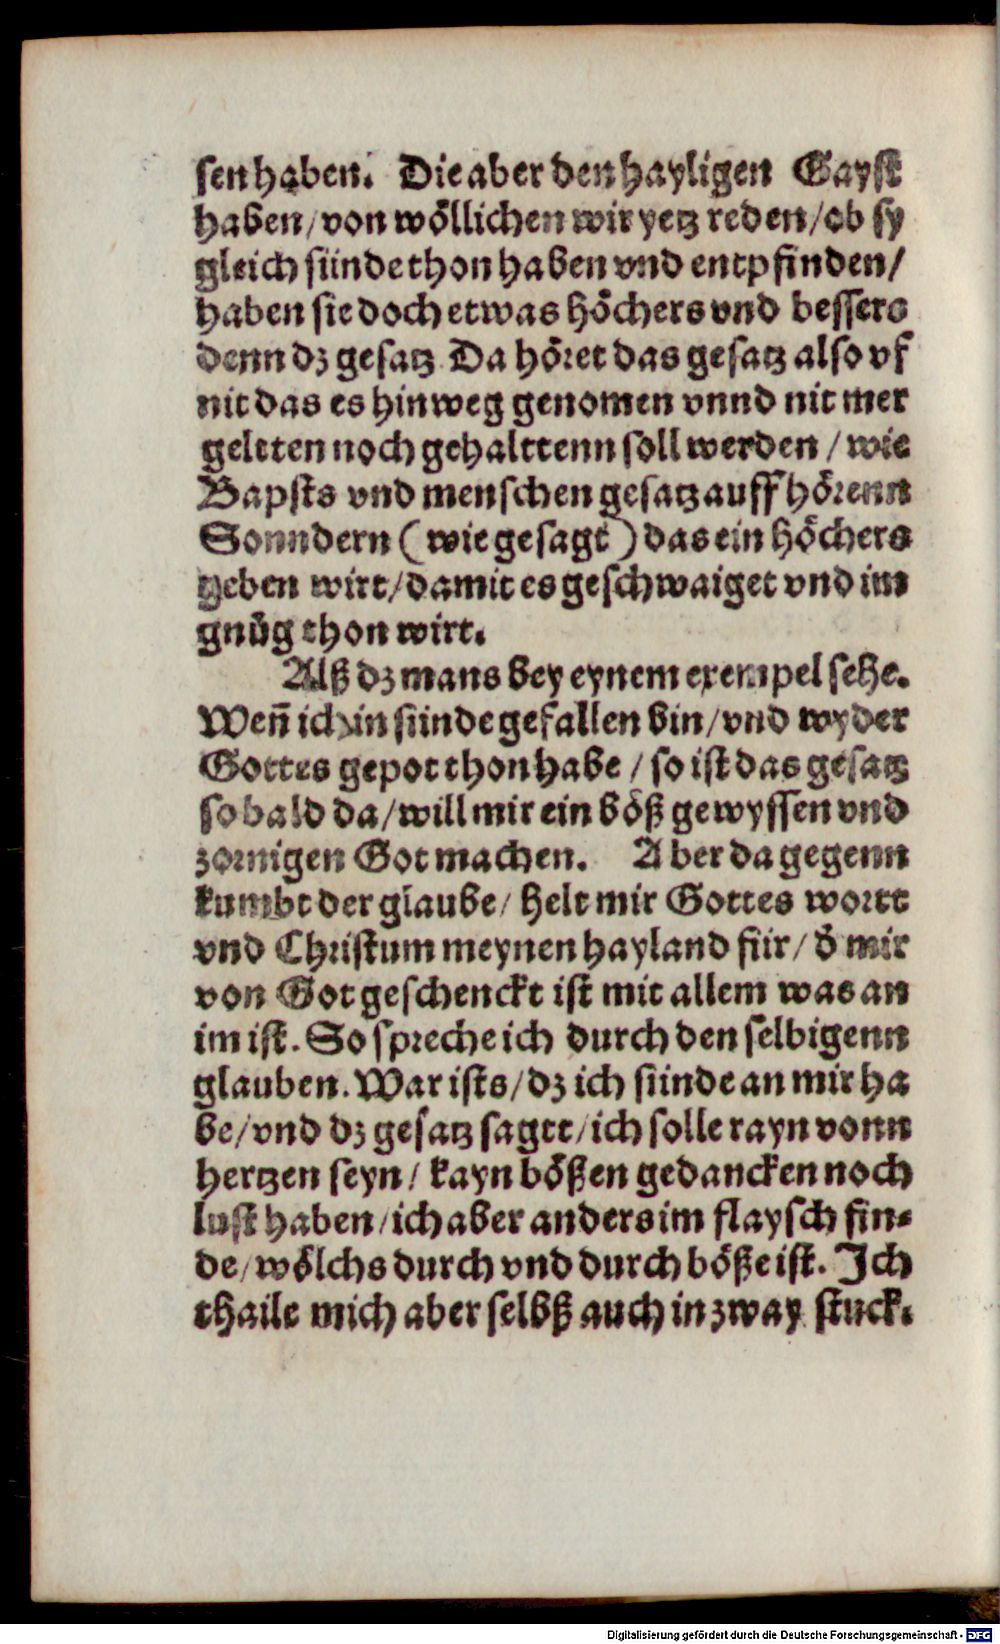 sen haben. Die aber den hayligen Gayst
haben/ von wöllichen wir yetz reden/ ob sy
gleich sünde thon haben vnd entpfinden/
haben sie doch etwas höchers vnd bessers
denn dz gesatz Da höret das gesatz also vf
nit das es hinweg genomen vnnd nit mer
geltten noch gehalttenn soll werden / wie
Bapsts vnd menschen gesatz auff hörenn
Sonndern ( wie gesagt ) das ein höchers
geben wirt/ damit es geschwaiget vnd im
gnůg thon wirt.
Alß dz mans bey eynem exempel sehe.
Weñ ich in sünde gefallen bin/ vnd wyder
Gottes gepot thon habe / so ist das gesatz
so bald da/ will mir ein böß gewyssen vnd
zornigen Got machen. Aber da gegenn
kumbt der glaube/ helt mir Gottes wortt
vnd Christum meynen hayland für/ d̕ mir
von Got geschenckt ist mit allem was an
im ist. So spreche ich durch den selbigenn
glauben. War ists/ dz ich sünde an mir ha
be/ vnd dz gesatz sagtt/ ich solle rayn vonn
hertzen seyn/ kayn bößen gedancken noch
lust haben/ ich aber anders im flaysch fin⸗
de/ wölchs durch vnd durch böße ist. Ich
thaile mich aber selbß auch in zway stuck.
Digitalisierung gefördert durch die Deutsche Forschungsgemeinschaft - DFG